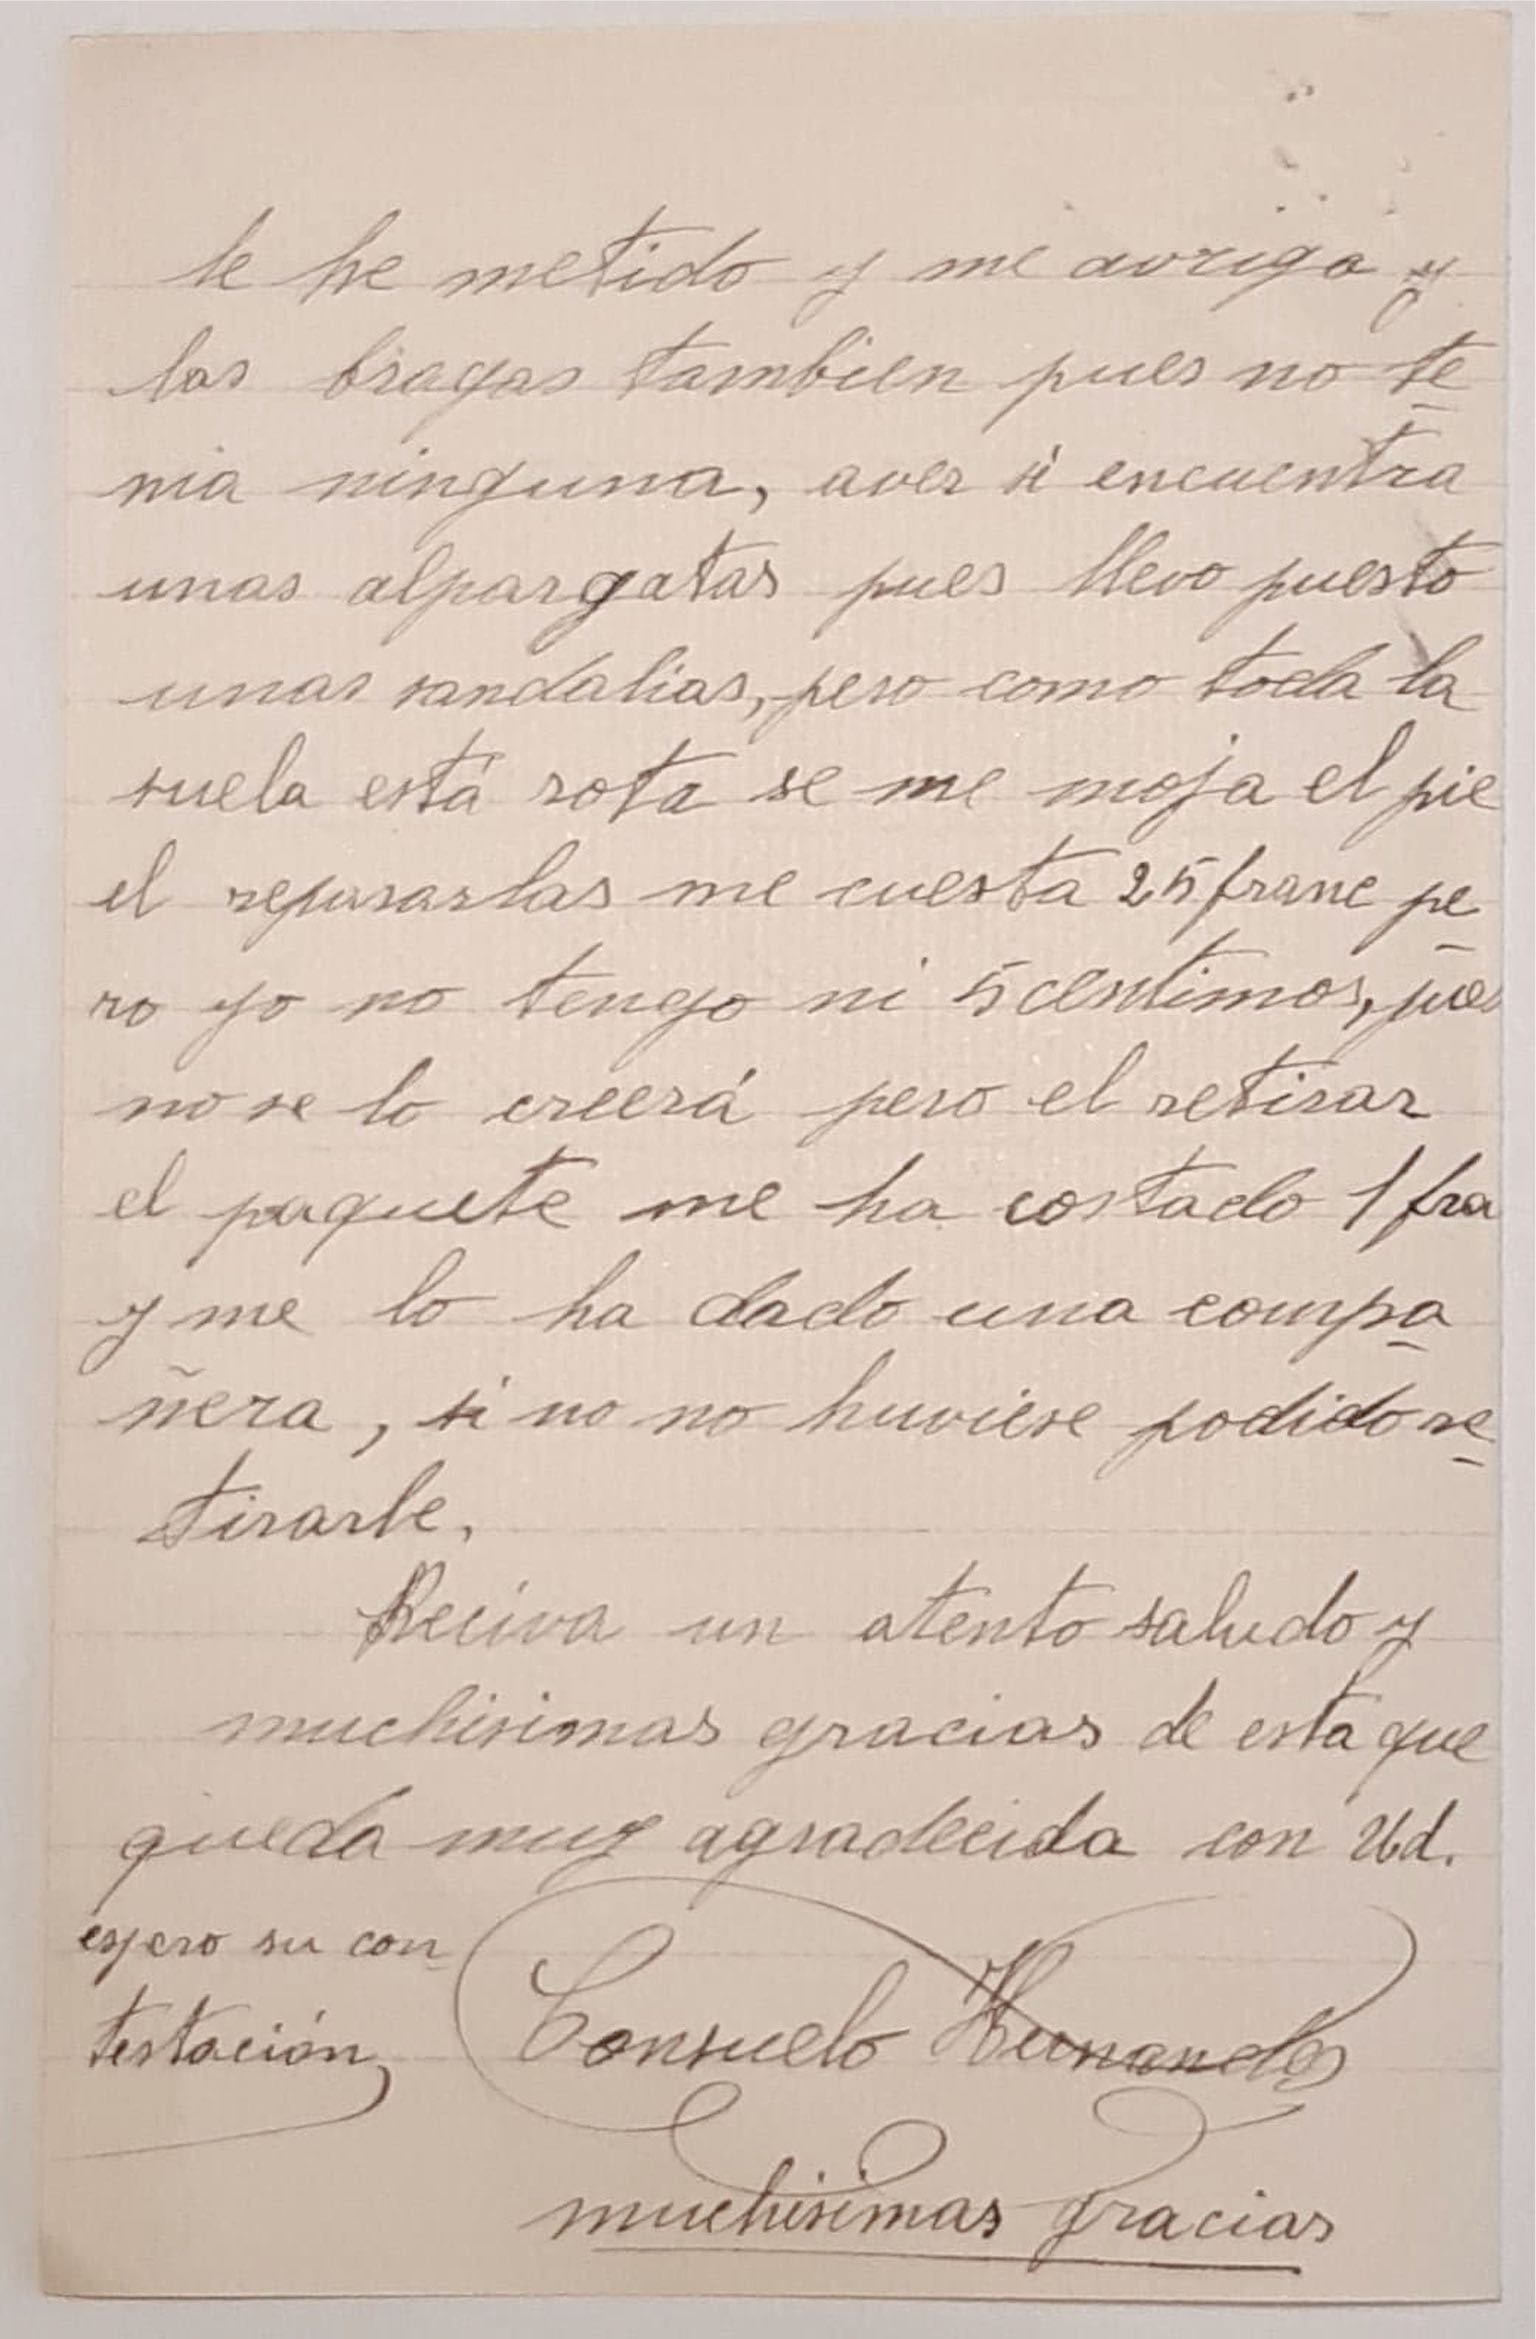 le he metido y me avriga y
las bragas tambien pues no te
nia ninguna, aver si encuentra
unas alpargatas pues llevo puesto
unas sandalias, pero como toda la
suela está rota se me moja el pie
el repararlas me cuesta 25 franc pe
ro yo no tengo ni 5 centimos, pues
no se lo creerá pero el retirar
el paquete me ha costado 1 fra
y me lo ha dado una compa
ñera, si no no huviese podido re
tirarle.
Reciva un atento saludo y
muchisimas gracias de esta que
queda muy agradecida con Ud.
espero su con
testación
Consuelo Hernandez
muchisimas gracias